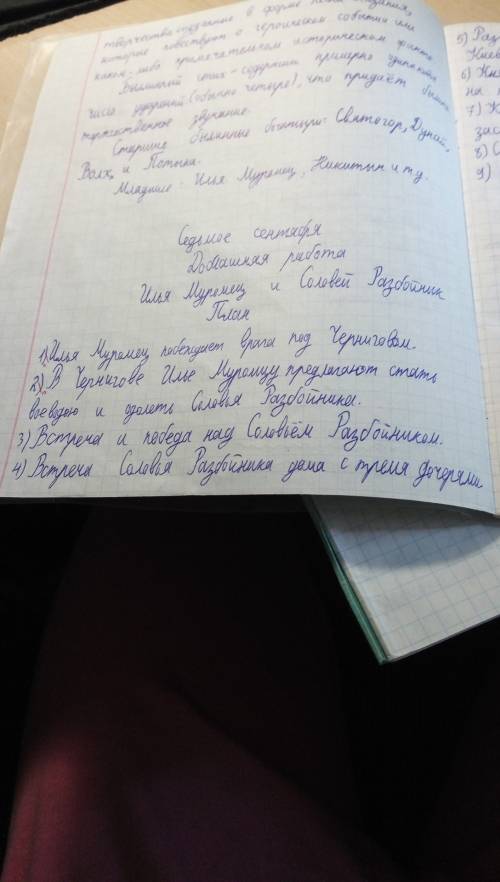 творчества созданное в форме песни сказания,
которое повествует о героическом событии или
каком-либо примечательном историческом факте.
Былинный стих - содержащий примерно одинаковое
число ударений (обычно четыре), что придаёт былинам
торжественное звучание.
Старшие былинные богатыри: Святогор, Дунай,
Волх, и Потыка.
Младшие: Илья Муромец, Никитыч и т.д.
Седьмое сентября
Домашняя работа
Илья Муромец и Соловей Разбойник
План
1) Илья Муромец побеждает врага под Черниговом.
2) В Чернигове Илье Муромцу предлагают стать
воеводою и одолеть Соловья Разбойника.
3) Встреча и победа над Соловьём Разбойником.
4) Встреча Соловья Разбойника дома с тремя дочерями
5) Раз
Киев
6) Кн
на
7) К
зас
8) С
9)